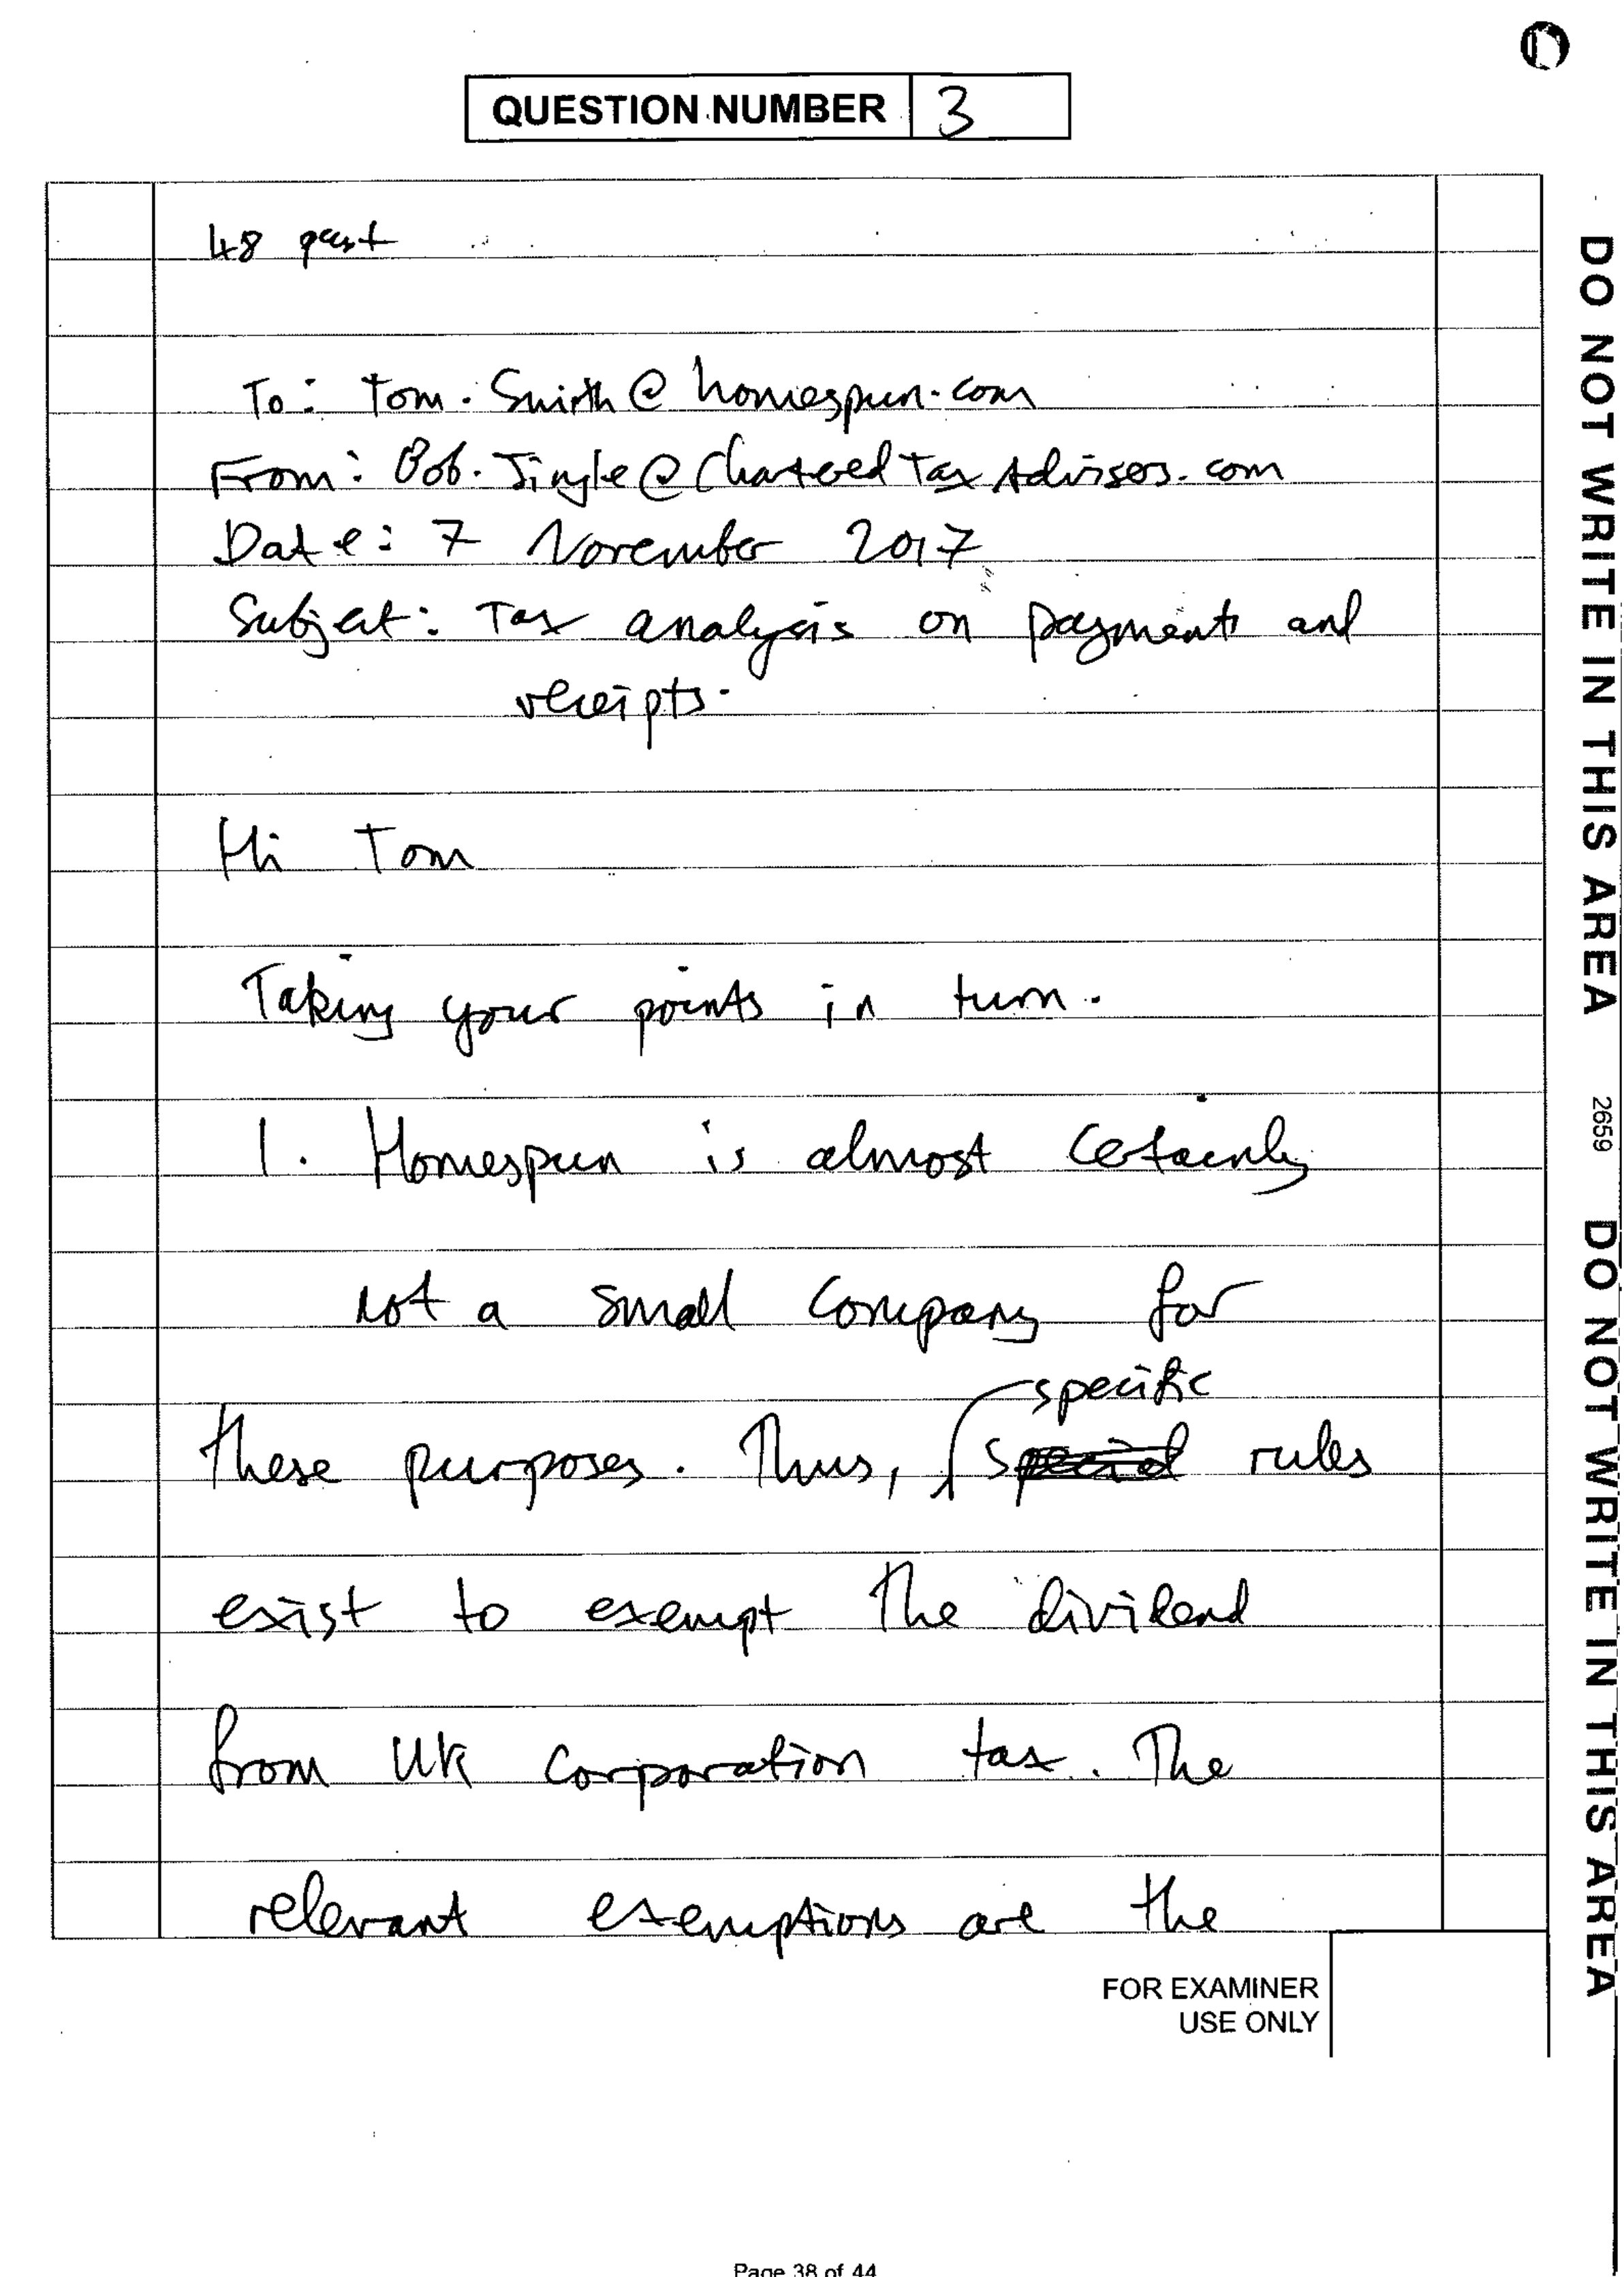 QUESTION NUMBER 3
48 past
To: Tom.Smith@homespun.com
From: Bob.Jingle@CharteredTaxAdvisors.com
Date: 7 November 2017
Subject: Tax analysis on payments and
receipts.
Hi Tom
Taking your points in turn.
1. Homespun is almost certainly
not a small company for
specific
these purposes. Thus, special rules
exist to exempt the dividend
from UK corporation tax. The
relevant exemptions are the
FOR EXAMINER
USE ONLY
Page 38 of 44
DO NOT WRITE IN THIS AREA 2659 DO NOT WRITE IN THIS AREA